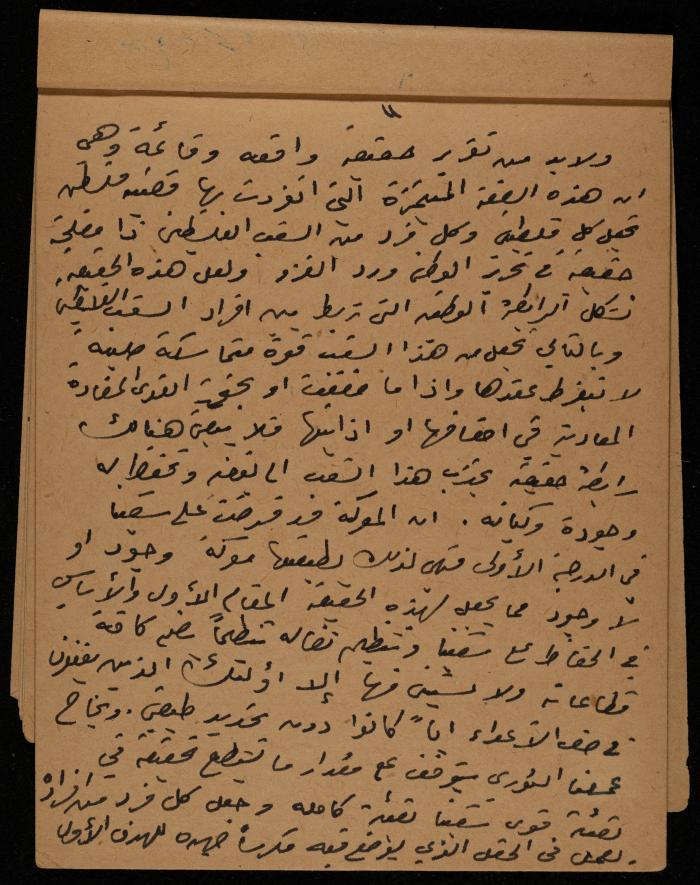 ولا بد من تقرير حقيقة واقعه وقائمة وهي
ان هذه الصفة المتميزة التي انفردت بها قضية فلسطين
تجعل كل فلسطيني وكل فرد من الشعب الفلسطيني ذا مصلحة
حقيقية في تحرير الوطن ورد الغزو ولعل هذه الحقيقة
تشكل الرابطة الوطنيه التي تربط بين افراد الشعب الفلسطيني
وبالتالي تجعل من هذا الشعب قوة متماسكة صلبة
لا ينفرط عقدها واذا ما او نجحت القوى المضادة
المعادية في اضعافها او اذابتها فلا يبقى هنالك
رابطة حقيقية تجذب هذا الشعب الى بعضه وتحفظ له
وجوده وكيانه . ان المعركة قد فرضت على شعبنا
في الدرجة الأولى فهي لذلك بطبيعتها معركة وجود او
لا وجود مما يجعل لهذه الحقيقة المقام الأول والأساسي
في الحفاظ على شعبنا وتنظيم نضاله تنظيماً يضم كافة
قطاعاته ولا يستثنى منها إلا أولئك الذين يقفون
في صف الأعداء اياً كانوا دون تحديد طبقي . ونجاح
عملنا الثوري يتوقف على مقدار ما نستطيع تحقيقه في
تعبئة قوى شعبنا تعبئة كامله وجعل كل فرد من افراده
يعمل في الحقل الذي يوضع فيه مكرساً جهده للهدف الأول